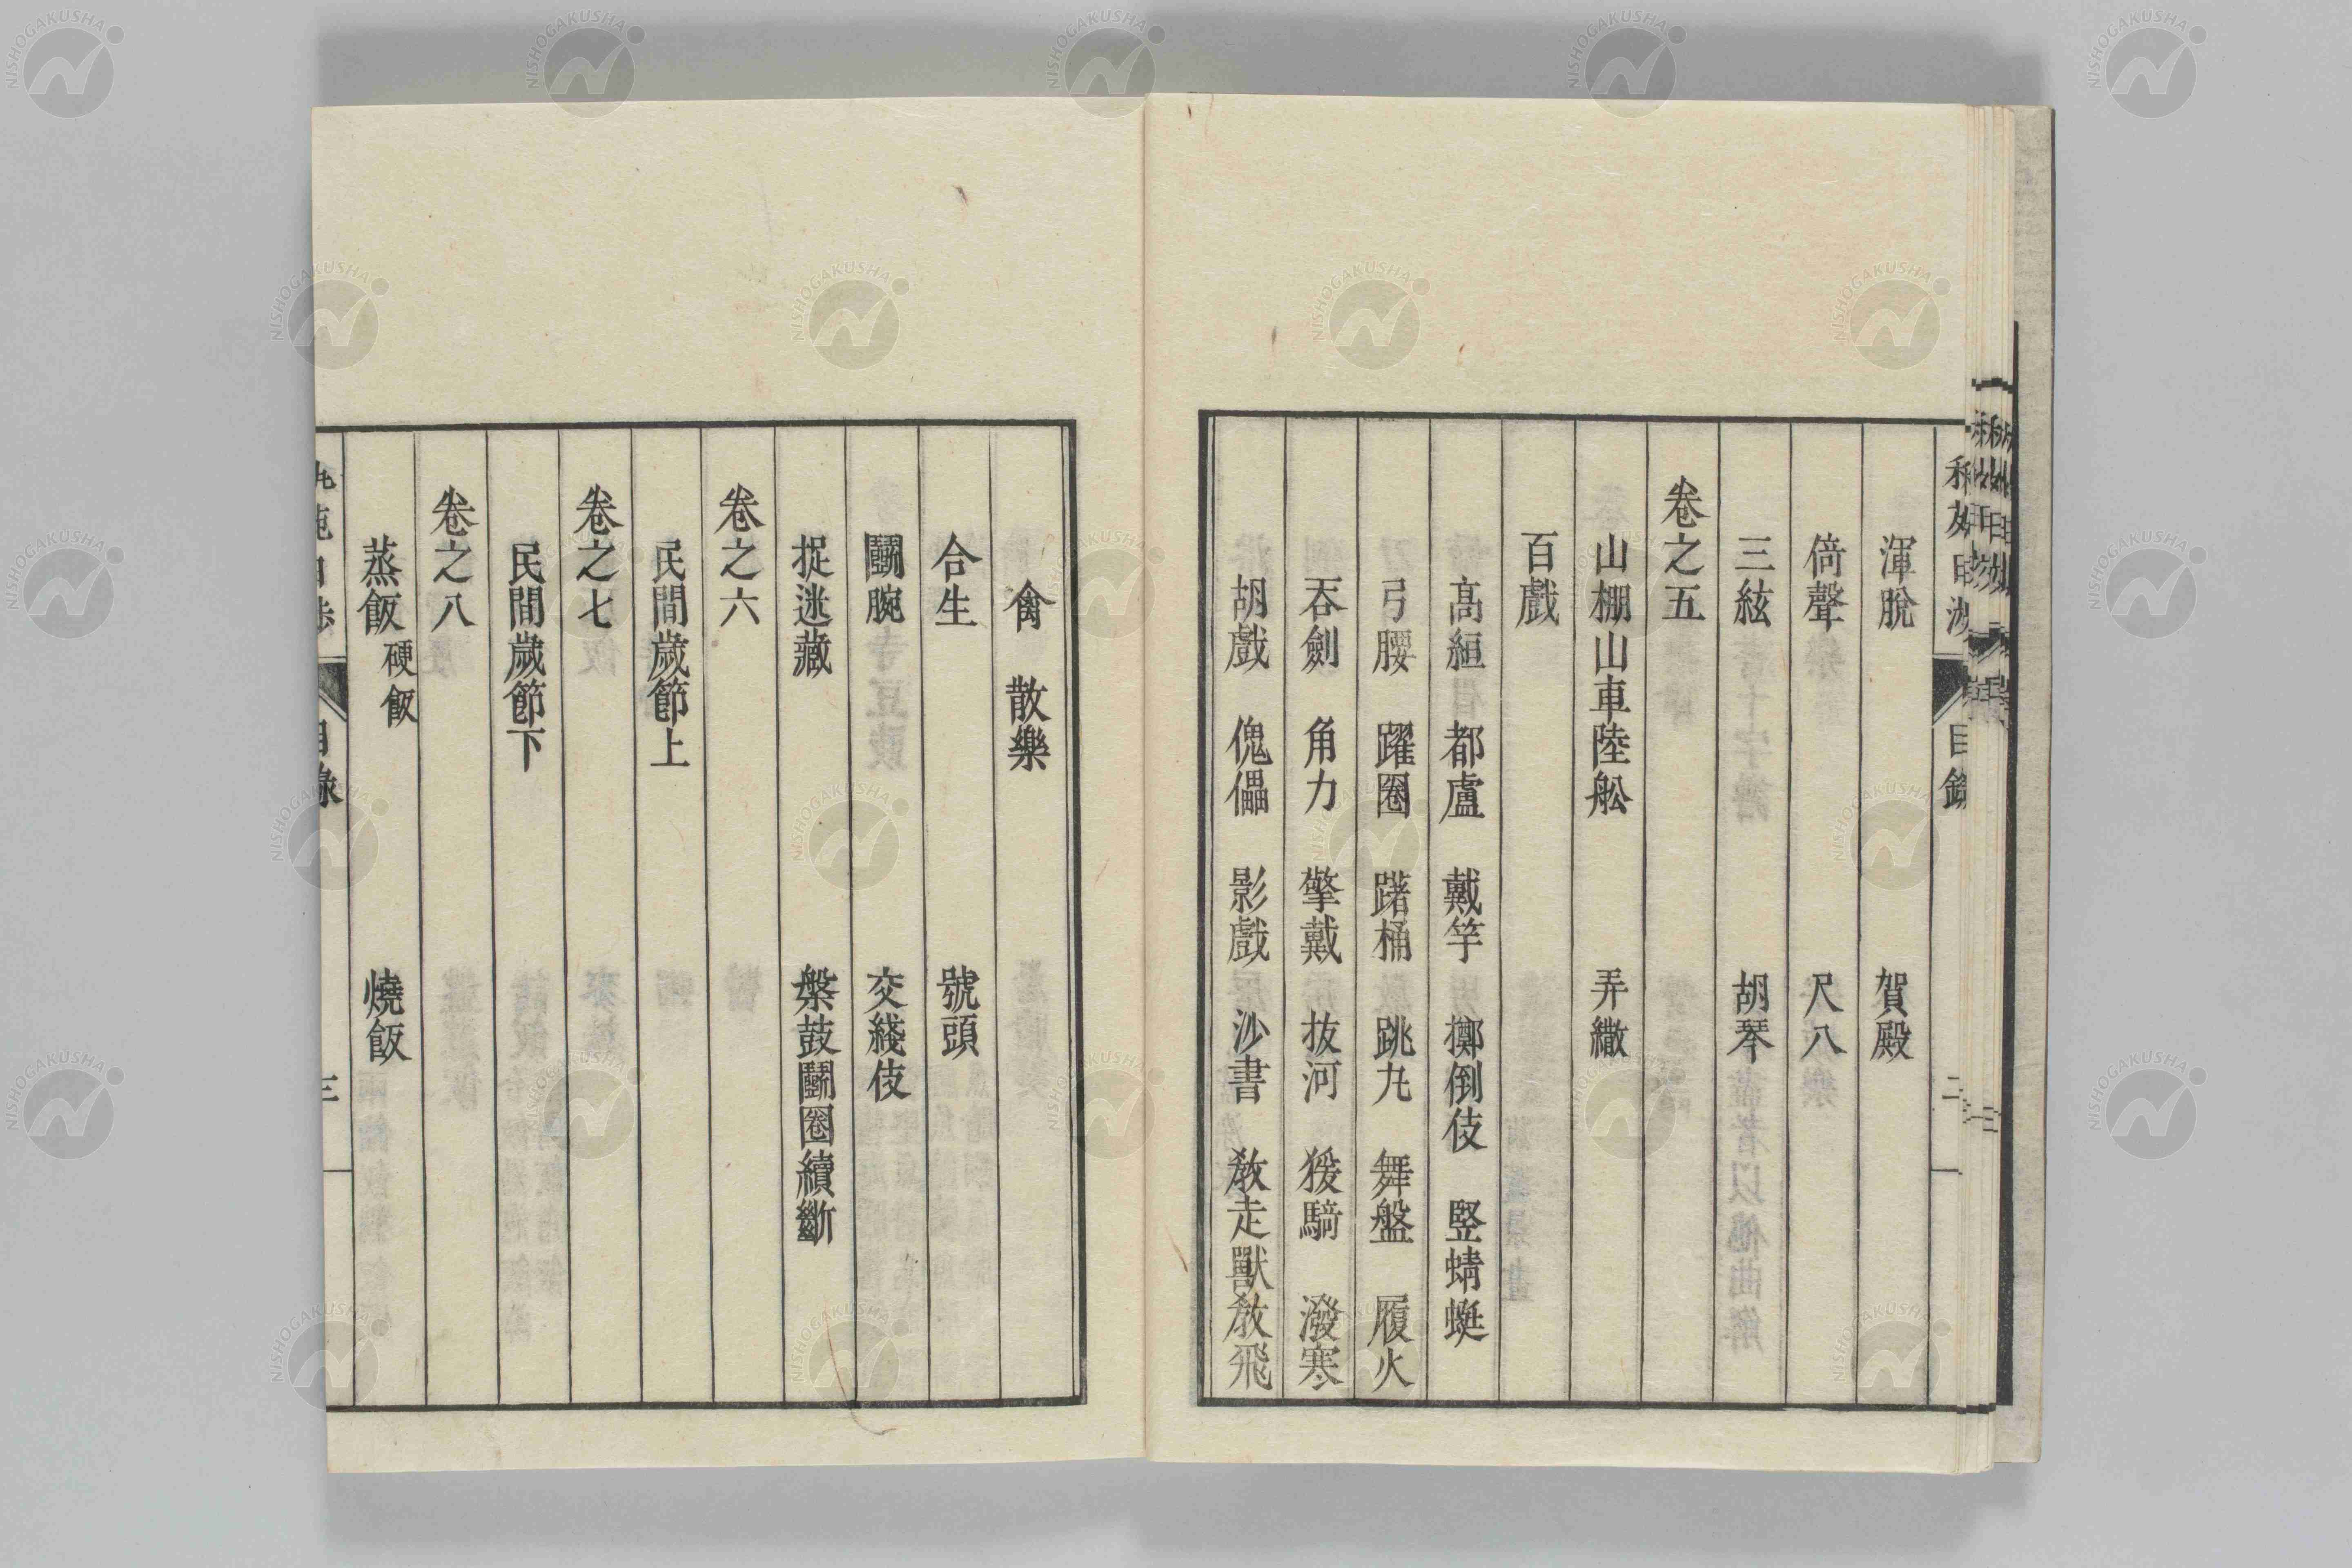 渾脫　賀殿
倚聲　尺八
三絃　胡琴
卷之五
山棚山車陸舩　弄繖
百戲
高絙　都盧　戴竿　擲倒伎　竪蜻蜓
弓腰　躍圈　踏桶　跳丸　舞盤　履火
吞劍　角力　擎戴　抜河　猨騎　潑寒
胡戲　傀儡　影戲　沙書　教走獸教飛
目錄
二
禽　散樂
合生　號頭
鬭腕　交綫伎
捉迷藏　槃鼓鬭圈續斷
卷之六
民間歲節上
卷之七
民間歲節下
卷之八
蒸飯　硬飯　燒飯
目錄
三
NISHOGAKUSHA